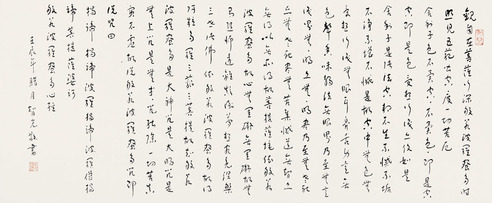 觀自在菩薩行深般若波羅蜜多時
照見五蘊皆空度一切苦厄
舍利子色不異空空不異色色即是空
空即是色受想行識亦復如是
舍利子是諸法空相不生不滅不垢
不淨不增不減是故空中無色無
受想行識無眼耳鼻舌身意無
色聲香味觸法無眼界乃至無意
識界無無明亦無無明盡乃至無老死
亦無老死盡無苦集滅道無智亦
無得以無所得故菩提薩埵依般若
波羅蜜多故心無罣礙無罣礙故
無有恐怖遠離顛倒夢想究竟涅槃
三世諸佛依般若波羅蜜多故得
阿耨多羅三藐三菩提故知般若
波羅蜜多是大神咒是大明咒是
無上咒是無等等咒能除一切苦
真實不虛故說般若波羅蜜多咒即
說咒曰
揭諦揭諦波羅揭諦波羅僧揭
諦菩提薩婆訶
般若波羅蜜多心經
壬辰年臘月敬書